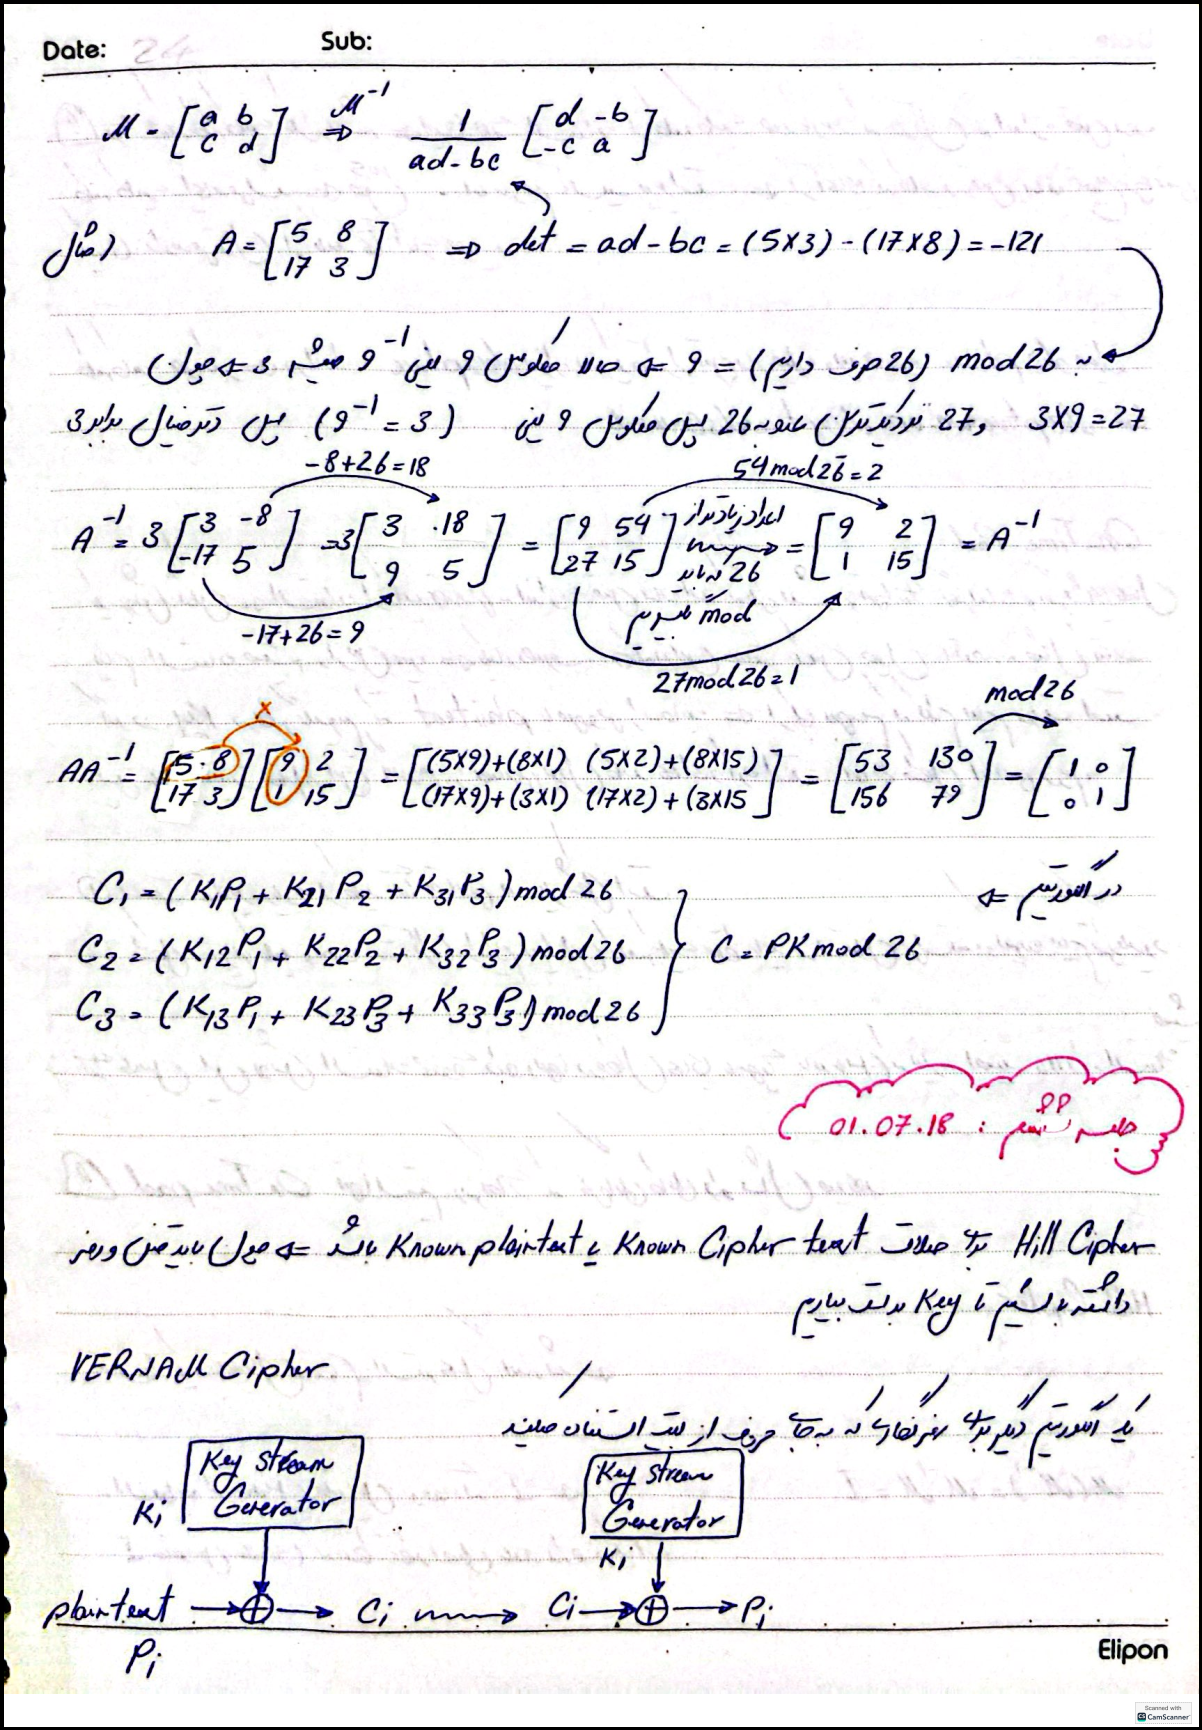 Date: 24 Sub:
M = [a b c d] ⇒ M^-1 1/(ad-bc) [d -b -c a]
مثال) A = [5 8 17 3] ⇒ det = ad-bc = (5×3) - (17×8) = -121
به mod 26 (26 حرف داریم) = 9 ⇐ حالا معکوس 9 یعنی 9^-1 میشه 3 ⇐ چون
3×9=27 و 27 نزدیکترین عدد به 26 پس معکوس 9 یعنی (9^-1 = 3) پس دترمینال برابر 3
-8+26=18 54 mod 26=2
A^-1 = 3 [3 -8 -17 5] = 3 [3 18 9 5] = [9 54 27 15] اعداد زیادتر از 26 که باید mod بگیریم = [9 2 1 15] = A^-1
-17+26=9
27 mod 26=1
mod 26
AA^-1 = [5 8 17 3] [9 2 1 15] = [(5×9)+(8×1) (5×2)+(8×15) (17×9)+(3×1) (17×2)+(3×15] = [53 130 156 79] = [1 0 0 1]
× 
در الگوریتم ⇐
C1 = (K1P1 + K21P2 + K31P3) mod 26
C2 = (K12P1 + K22P2 + K32P3) mod 26 } C = PK mod 26
C3 = (K13P1 + K23P3 + K33P3) mod 26
جلسه ششم : 01.07.18
Hill Cipher برای حملات Known Cipher text یا Known plaintext باشد ⇐ چون باید متن و رمز
داشته باشیم تا Key بدست بیاریم
VERNAM Cipher
یک الگوریتم دیگر برای رمزنگاری که به جای حروف از بیت استفاده میکند
Key Stream Generator Key Stream Generator
Ki Ki
plaintext → ⊕ → Ci → Ci → ⊕ → Pi
Pi
Elipon
Scanned with
CS CamScanner